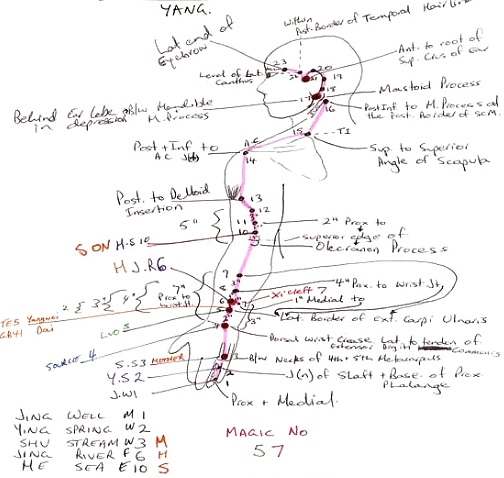 YANG.
Within
Post. Border of Temporal Hairline
Lat end of
Eyebrow
Ant. to root of
Sup. Crus of Ear
Level of Lat.
Canthus
23
20
19
18
17
16
Mastoid Process
Behind Ear Lobe b/w Mandible
in depression M. Process
Post Inf to M. Process at
the Post. Border of SCM.
15
T1
Post + Inf to
AC Jt
A.C
14
Sup. to Superior
Angle of Scapula
Post. to Deltoid
Insertion
13
12
11
10
5"
2" Prox to
superior edge of
Olecranon Process
SON H.S10
HJ.R6
7"
Prox to
Wrist Jt.
4" Prox. to Wrist Jt
Xi cleft 7
1" Medial to
Lat. Border of Ext. Carpi Ulnaris
2" { 3" { 4" {
3"
TE5 Yangwei
GB41 Dai
LUO 5
SOURCE 4
Dorsal Wrist Crease Lat. to tendon of
Extensor Digiti Communis
S.S3 MOTHER
Y.S2
J.W1
3
2
1
B/w Necks of 4th + 5th Metacarpals
J(n) of Shaft + Base. of Prox.
Phalange
Prox + Medial.
JING WELL M 1
YING SPRING W 2
SHU STREAM W 3 M
JING RIVER F 6 H
HE SEA E 10 S
MAGIC NO
57